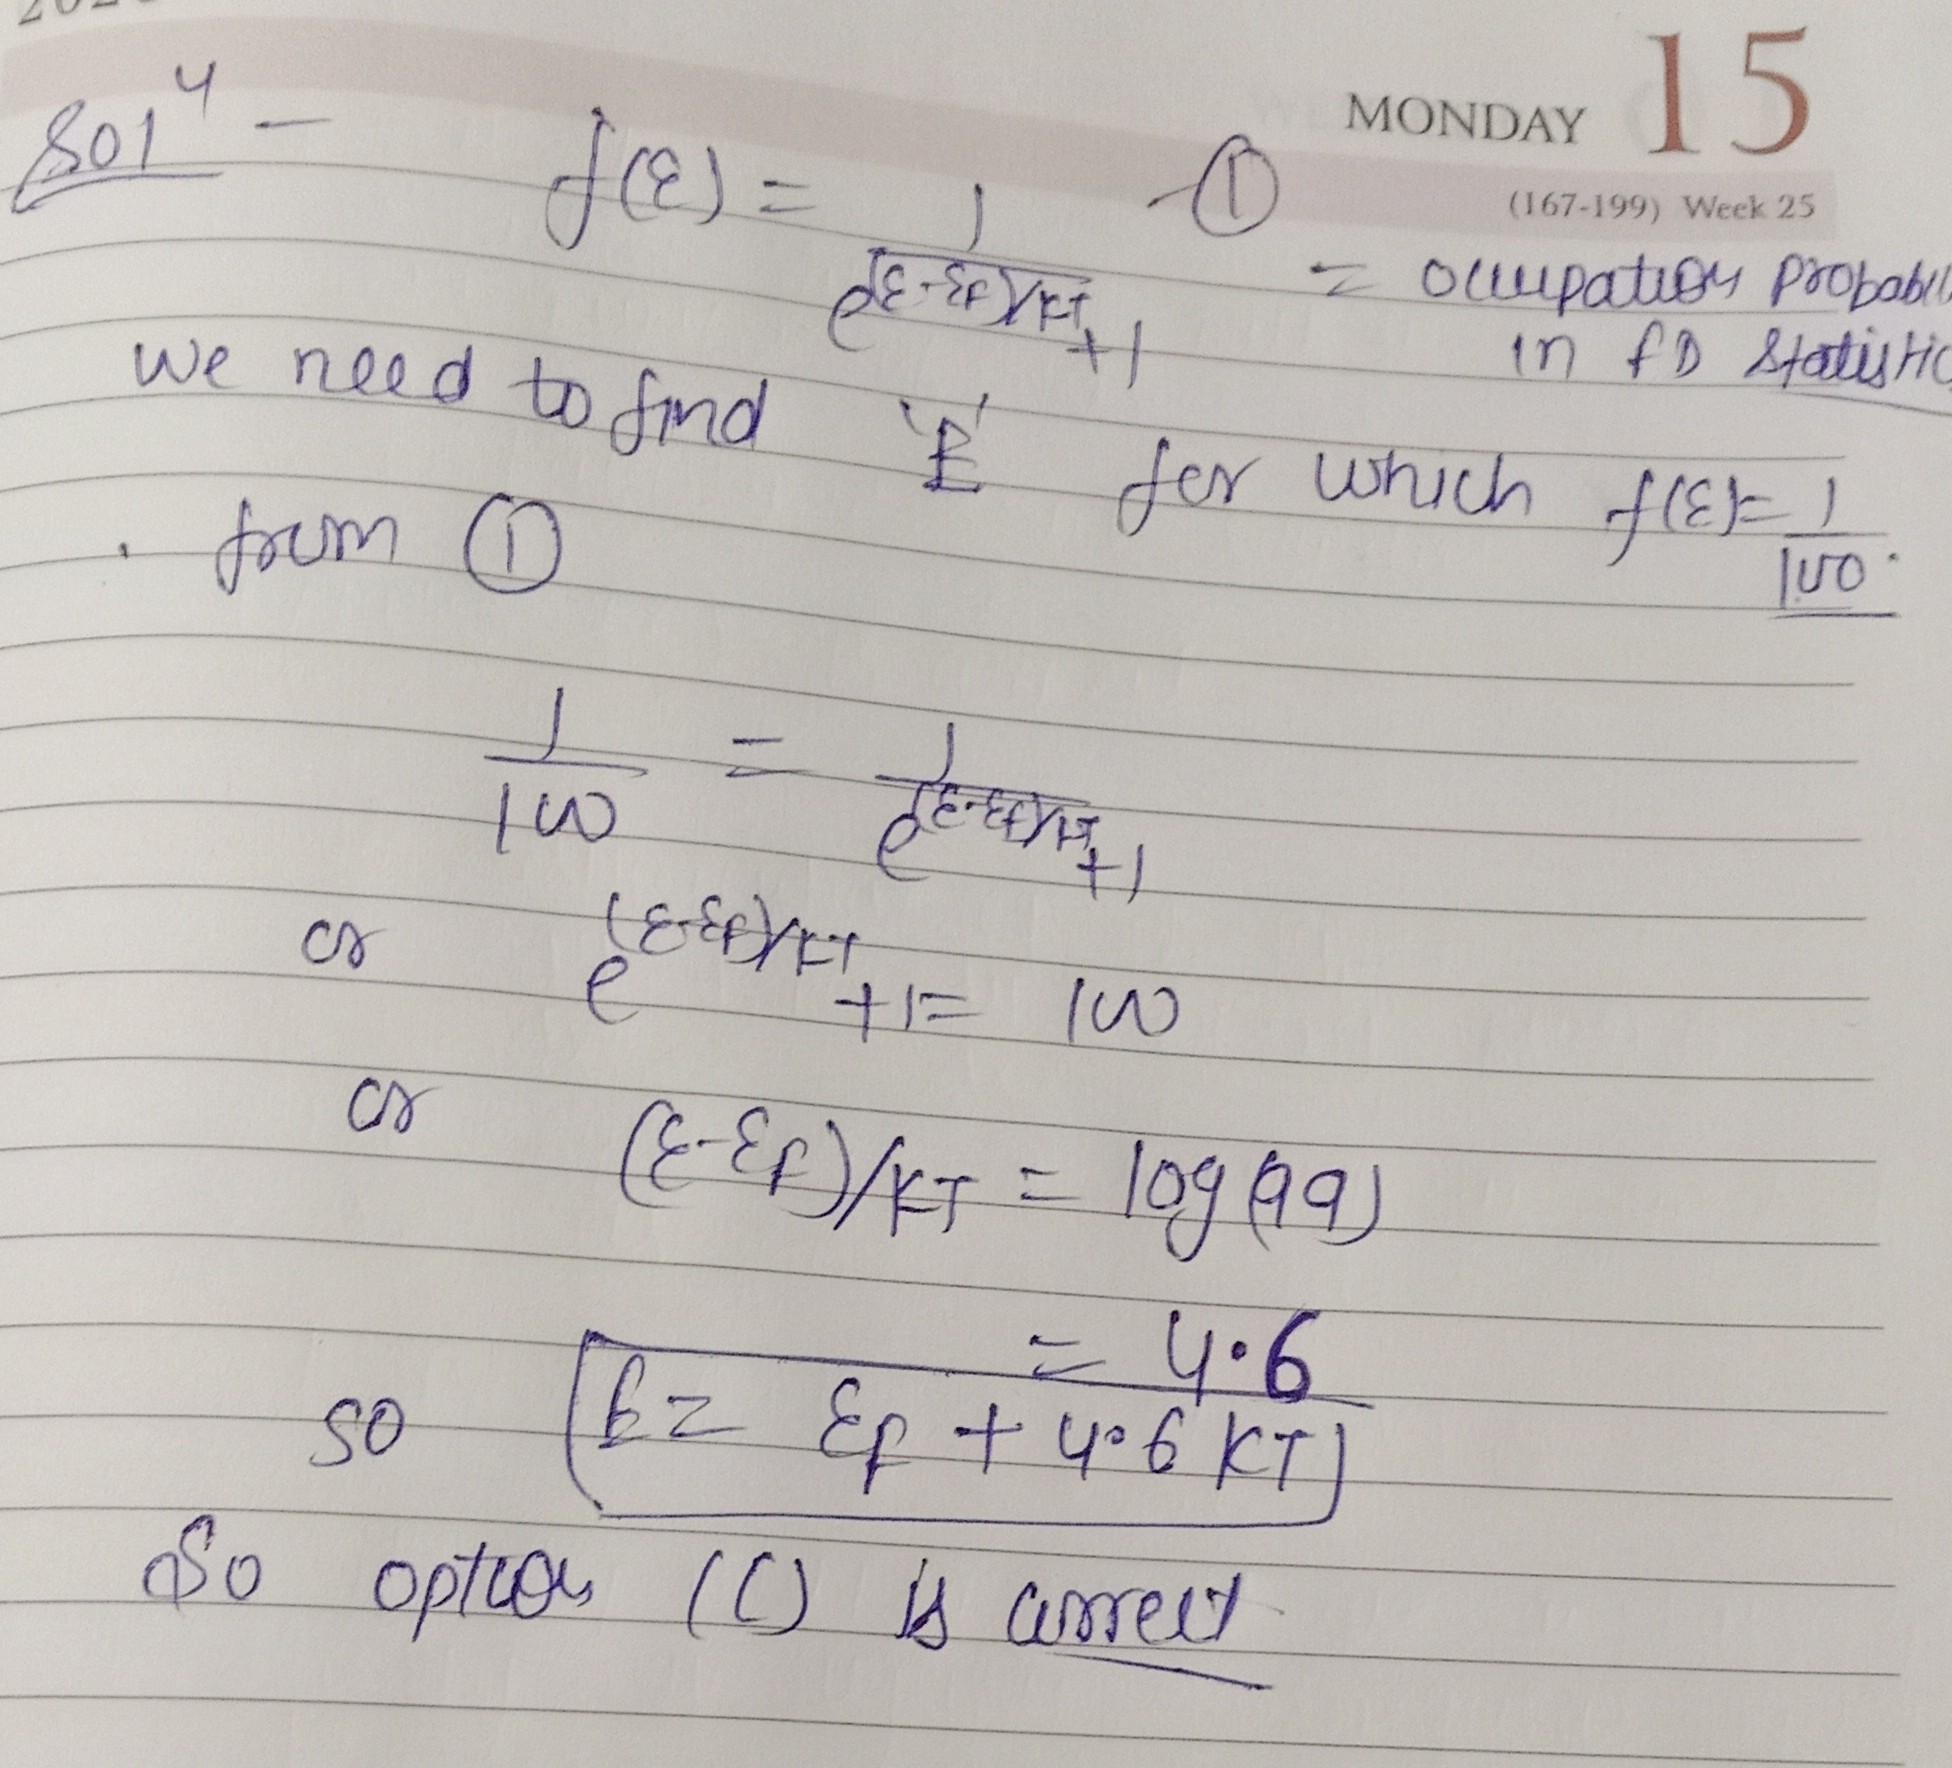 MONDAY 15
(167-199) Week 25
Solⁿ -
f(ε) = 1/(e^(ε-εf)/KT +1) -①
= occupation probabil
in fD Statistic
we need to find 'E' for which f(ε)=1/100.
from ①
1/100 = 1/(e^(ε-εf)/KT +1)
or e^(ε-εf)/KT +1= 100
or (ε-εf)/KT = log(99)
= 4.6
so E= εf + 4.6 KT
So option (C) is correct